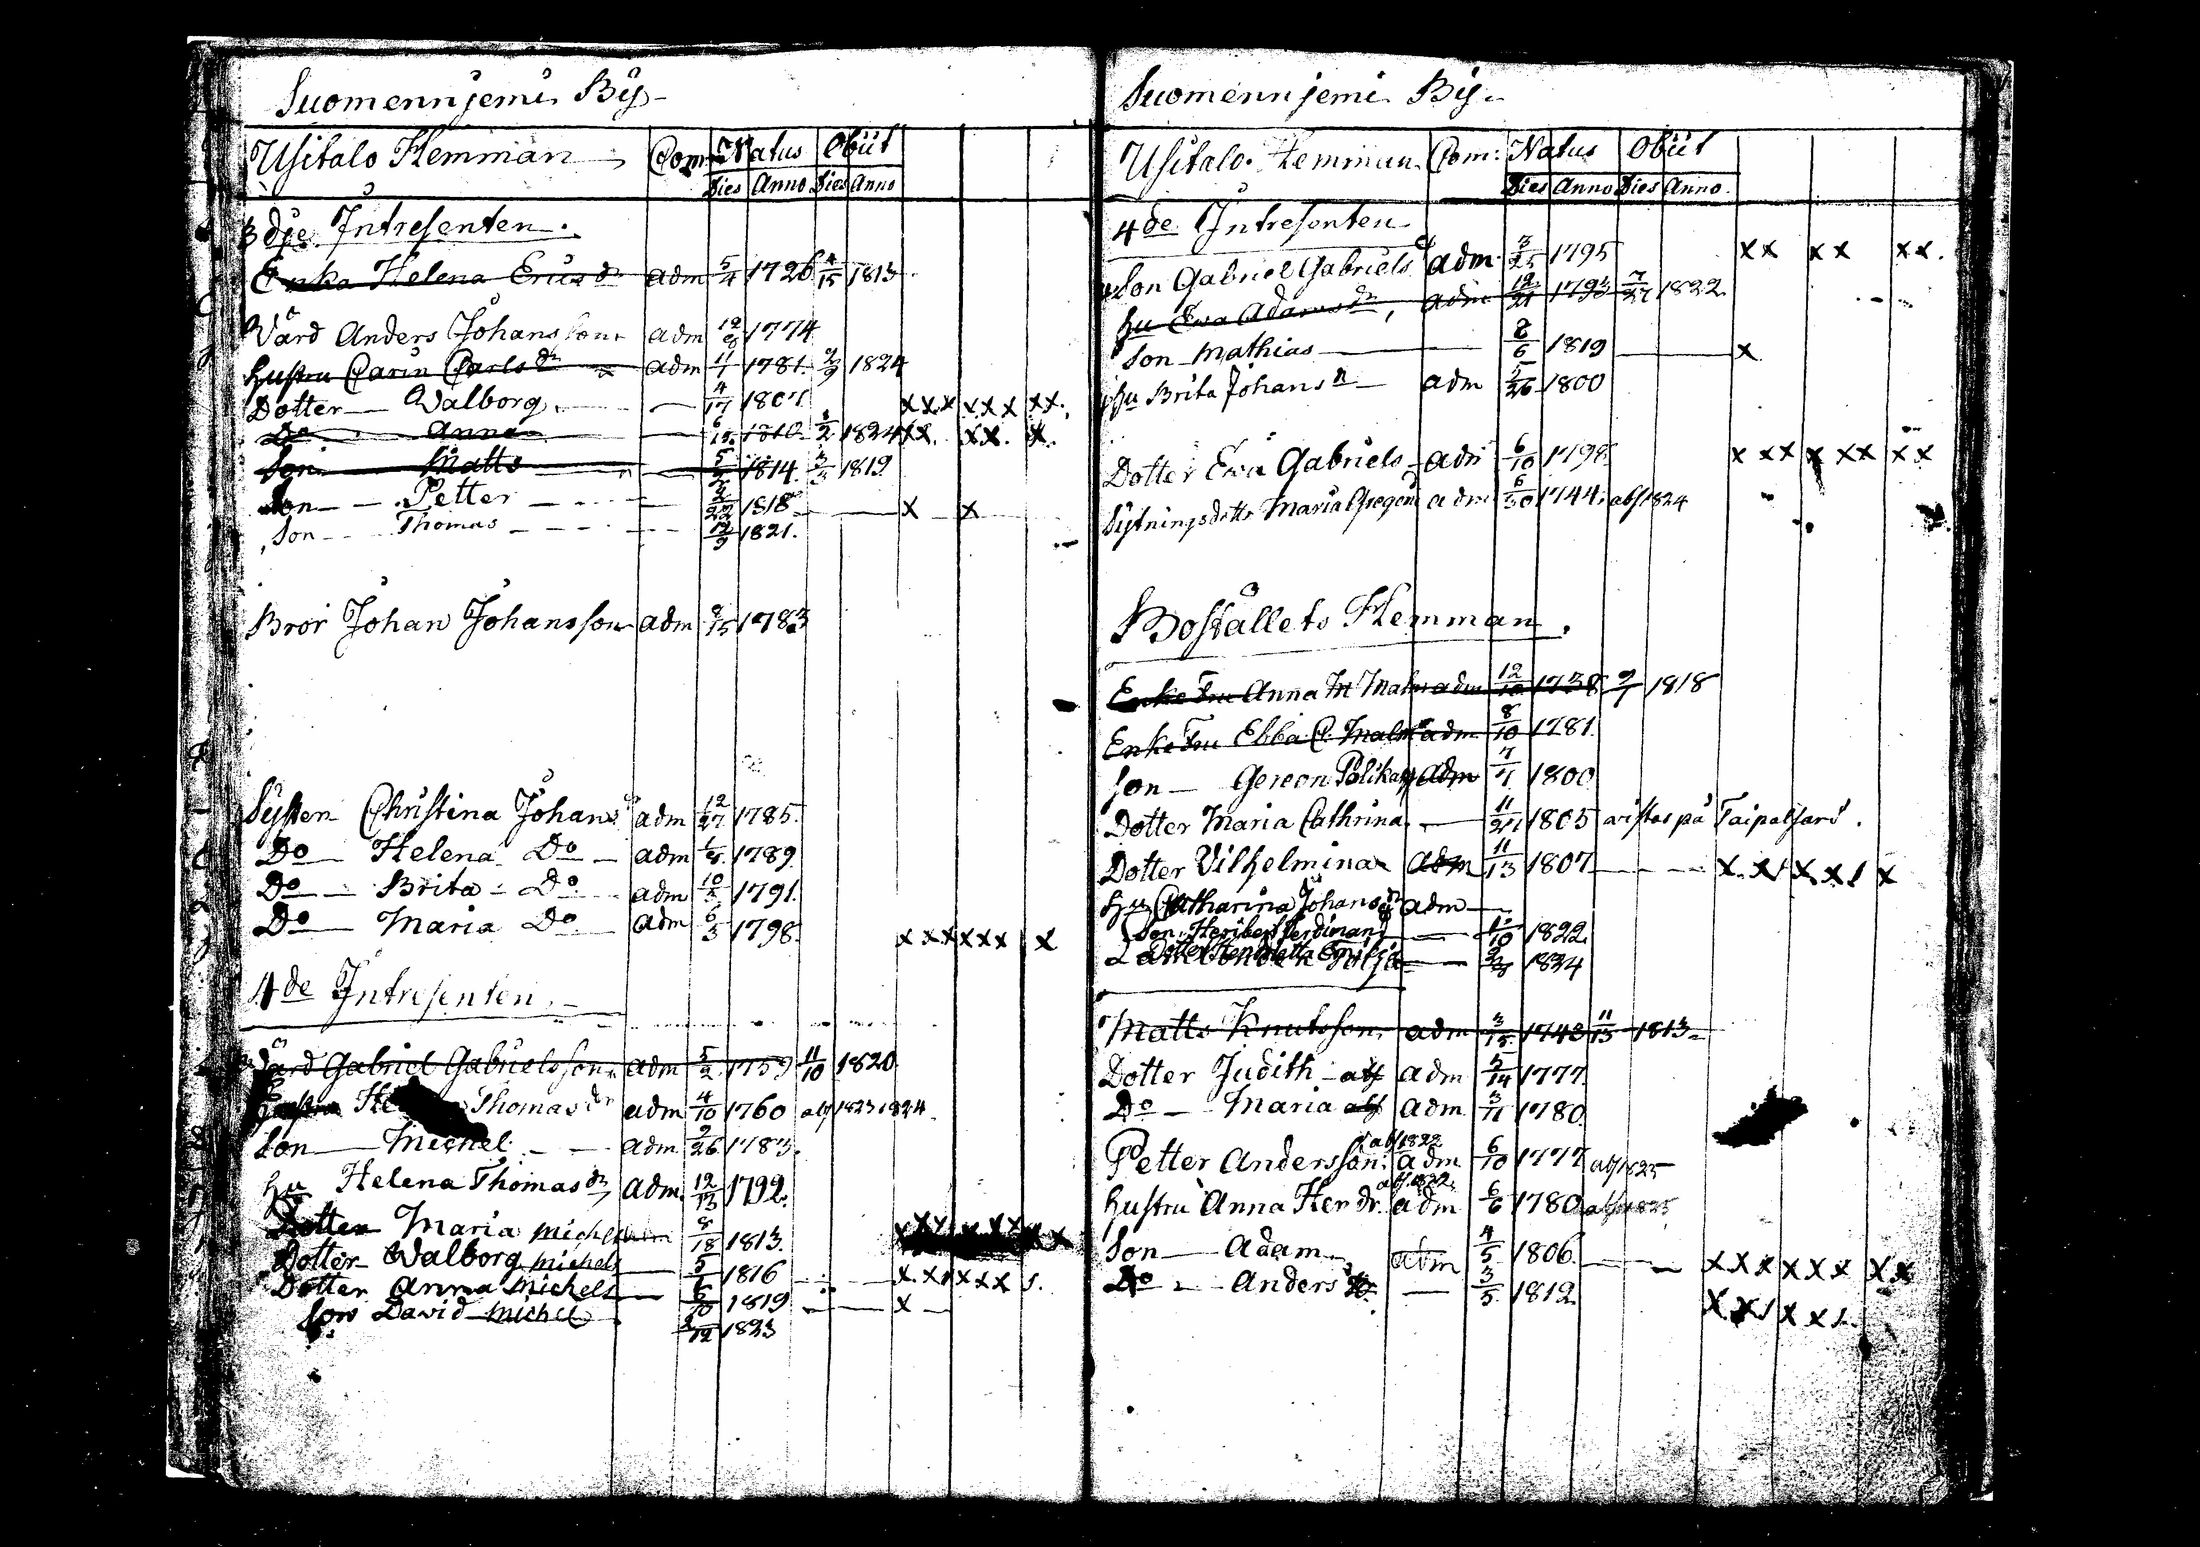 Suomennjemi By
Usitalo Hemman Com: Natus Obiit
Dies Anno Dies Anno
3dje Intresenten.
Enka Helena Ericsdr adm 5/4 1726 4/15 1813
Värd Anders Johansson adm 12/8 1774
Hustru Carin Carlsdr adm 11/1 1781 2/9 1824
Dotter Walborg 4/17 1807 xxx xxx xx
Do Anna 1810 1/2 1824 xx xx x
Son Matts 1814 3/3 1819
Son Petter 3/22 1818 x x
Son Thomas 12/9 1821.
Bror Johan Johansson adm 1783
Systen Christina Johans adm 12/27 1785.
Do Helena Do adm 1789.
Do Brita Do adm 1791.
Do Maria Do adm 6/3 1798. xxx xxx x
4de Intresenten.
Värd Gabriel Gabrielsson adm 5/2 1759 11/10 1820
Hustru Thomasdr adm 4/10 1760 abs 1823 1824
Son Michel adm 2/26 1783.
Hu Helena Thomasdr adm 12/13 1792.
Dotter Maria Michels adm 8/18 1813.
Dotter Walborg Michels 1816
Dotter Anna Michels 6/10 1819 x
Son David Michels 2/12 1823
Suomennjemi By
Usitalo Hemman Com: Natus Obiit
Dies Anno Dies Anno.
4de Intresenten
Son Gabriel Gabriels adm 3/25 1795 xx xx xx.
Hu Ewa Adamsdr, adm 12/21 1793 7/27 1822
Son Mathias 8/6 1819 x
Hu Brita Johans adm 1800
Dotter Ewa Gabriels adm 6/10 1798 xxx xxx xx
Sytningsdotter Maria adm 1744 abs 1824
Boställets Hemman.
Enke Fru Anna M Malm adm 12/10 1738 9/7 1818
Enke Fru Ebba C. Malm adm 8/10 1781.
Son Gereon adm 1800
Dotter Maria Cathrina 11/21 1805 wistas på Taipalsari.
Dotter Vilhelmina adm 11/13 1807
Hu Catharina Johansdr adm
Son Heribert Ferdinand 1822
Dotter Henrietta Emilia 1824
Matts Knutsson adm 3/15 1743 11/13 1813
Dotter Judith abs adm 5/14 1777.
Do Maria abs adm 3/11 1780.
abs 1822
Petter Andersson adm 6/10 1777 abs 1825
abs 1822
Hustru Anna Hendr. adm 6/6 1780 abs 1825
Son Adam adm 4/5 1806 xxx xxx xx
Do Anders 3/5 1812